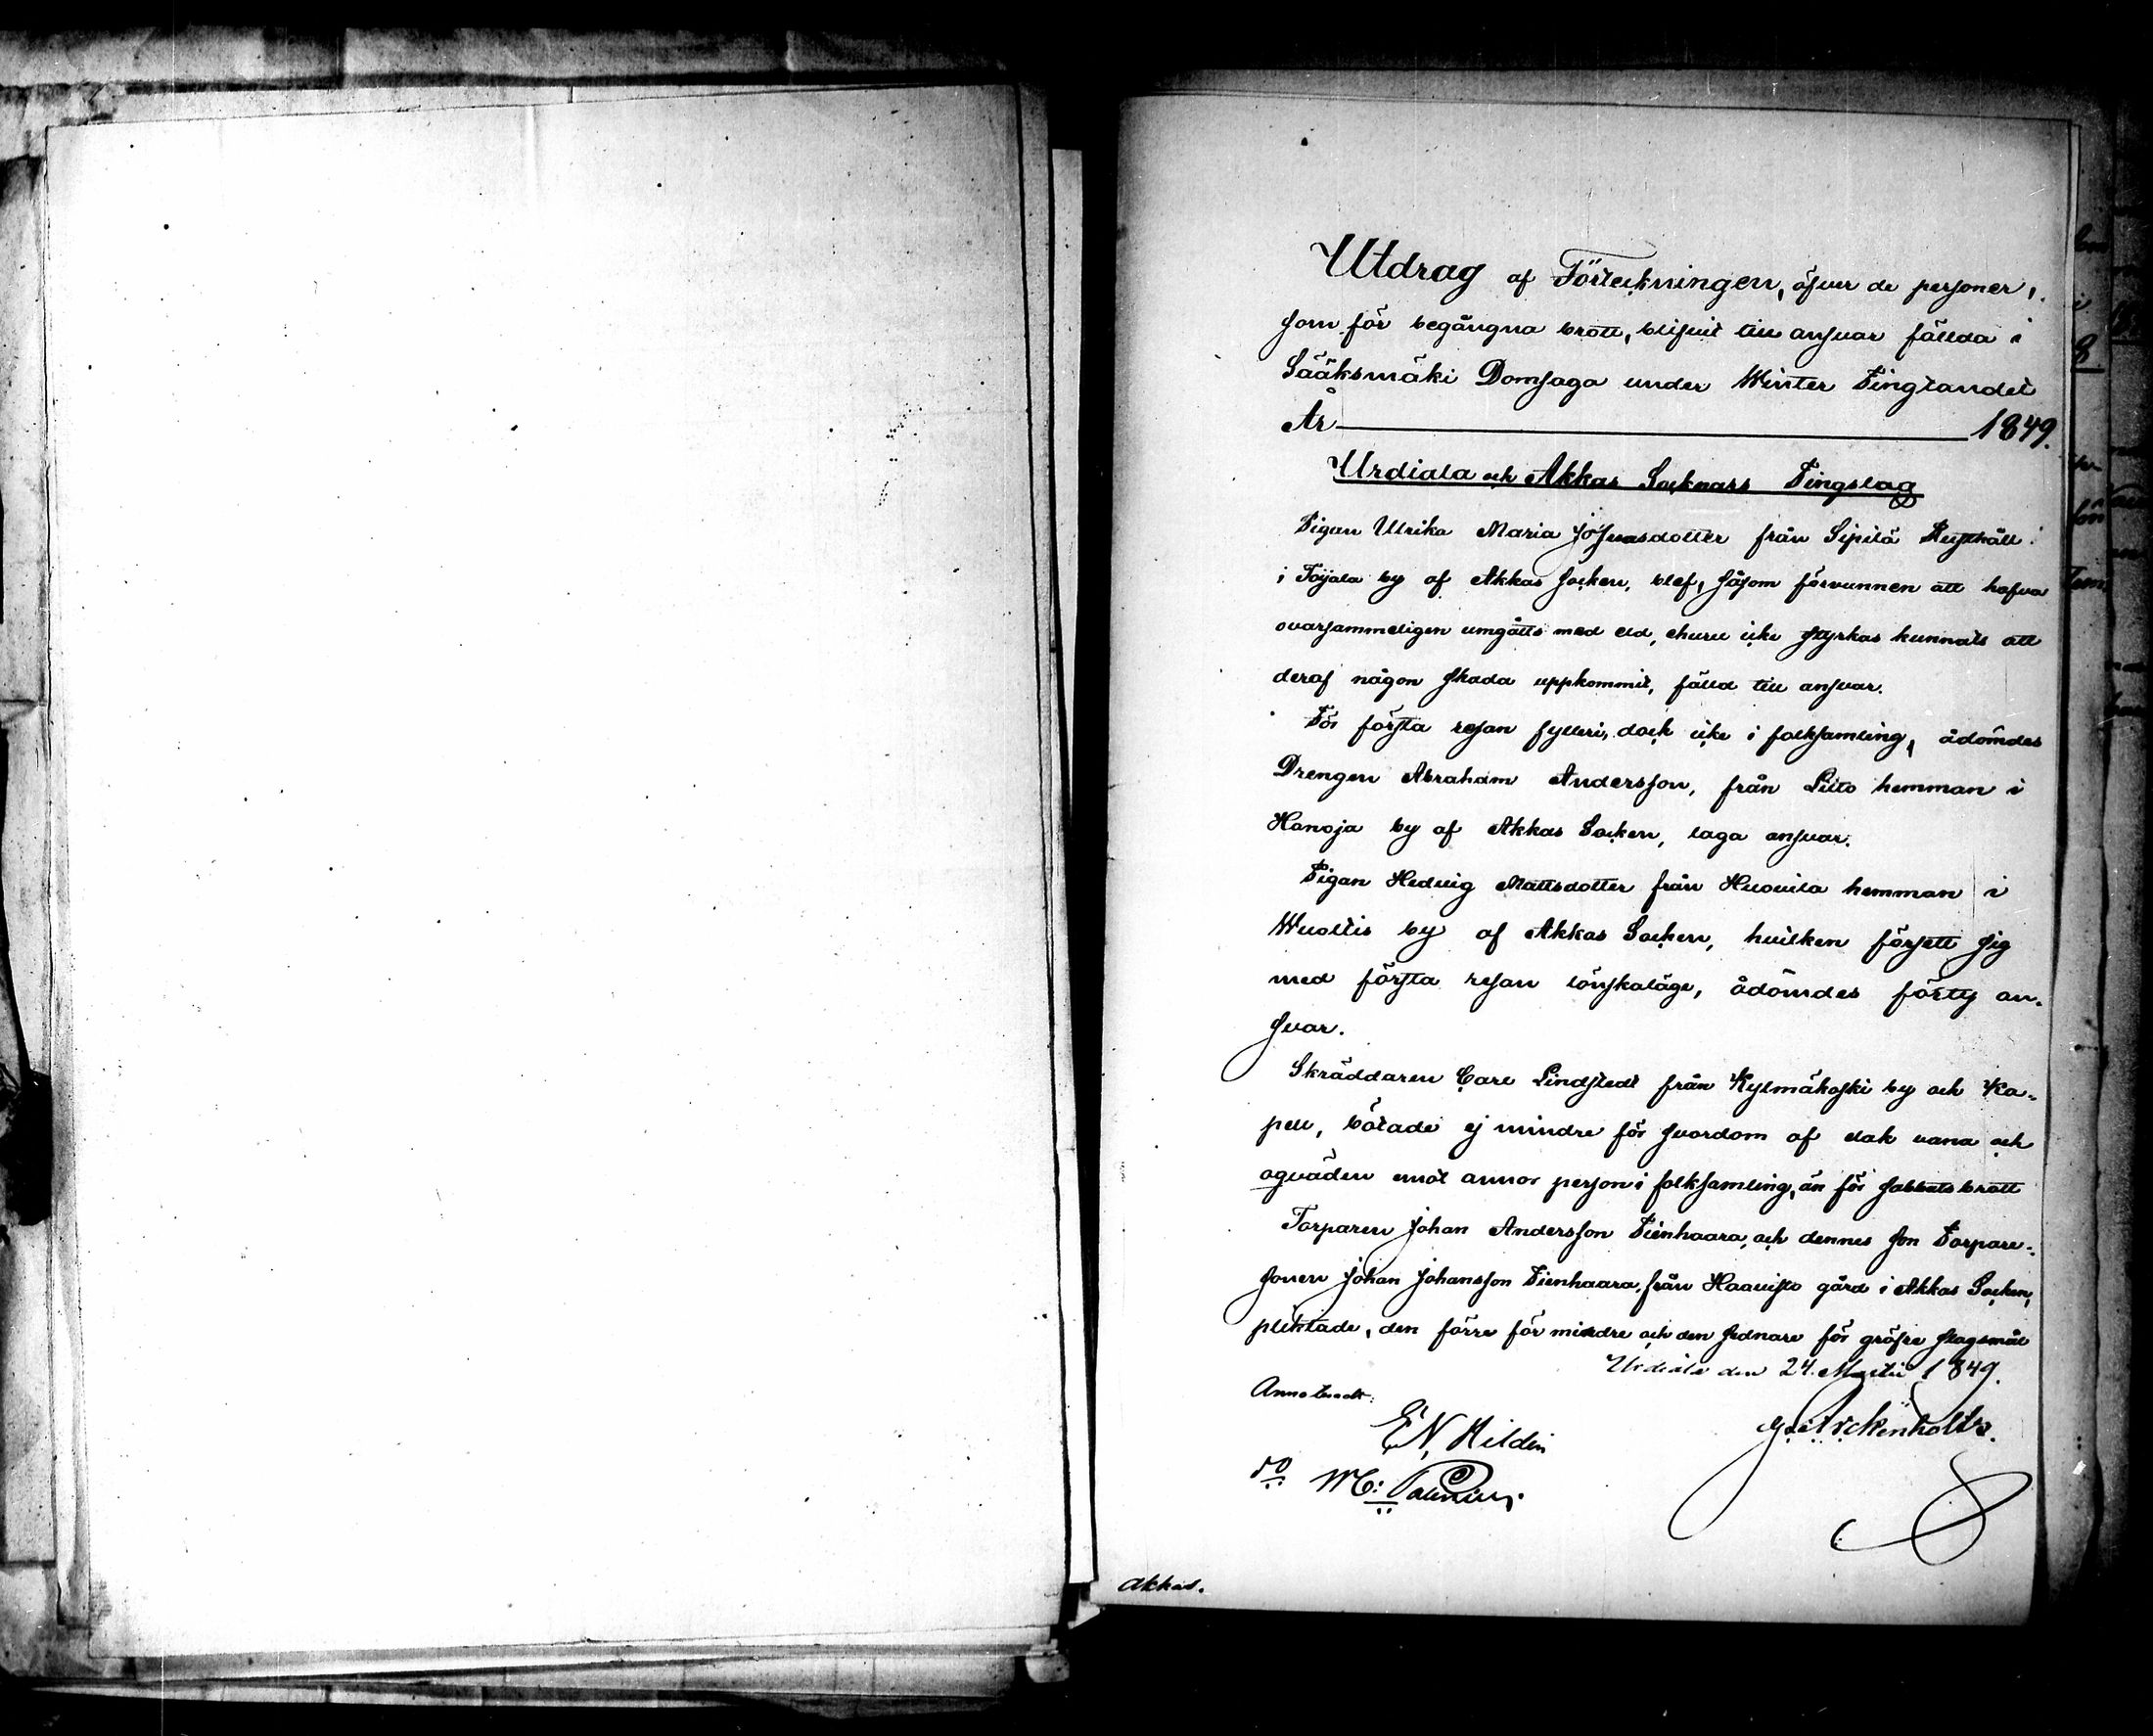 Utdrag af Förteckningen, öfver de personer,
som för begångna brott, blifvit till ansvar fällda i
Sääksmäki Domsaga under Winter Tingtandet
År 1849.
Urdiala och Akkas Socknars Tingslag
Pigan Ulrika Maria Josuasdotter från Sipilä Rusthåll
i Toijala by af Akkas Socken, blef, såsom förvunnen att hafva
ovarsammeligen umgåtts med eld, ehuru icke styrkas kunnats att
deraf någon skada uppkommit, fälld till ansvar.
För första resan fylleri, dock icke i folksamling, ådömdes
Drengen Abraham Andersson, från Litto hemman i
Hanoja by af Akkas Socken, laga ansvar.
Pigan Hedvig Mattsdotter från Huovila hemman i
Wuoltis by af Akkas Socken, hvilken försett sig
med första resan lönskaläge, ådömdes förty an-
svar.
Skräddaren Carl Lindstedt från Kylmäkoski by och Ka-
pell, bötade ej mindre för svordom af elak vana och
oqväden emot annor person i folksamling, än för sabbatsbrott
Torparen Johan Andersson Pienhaara, och dennes son Torpare-
sonen Johan Johansson Pienhaara, från Haavisto gård i Akkas Socken,
pliktade, den förre för mindre och den sednare för gröfre slagsmål
Urdiala den 24 Martii 1849.
Annoteradt:
E N, Hildén
G. Arckenholtz.
do M:
Akkas.